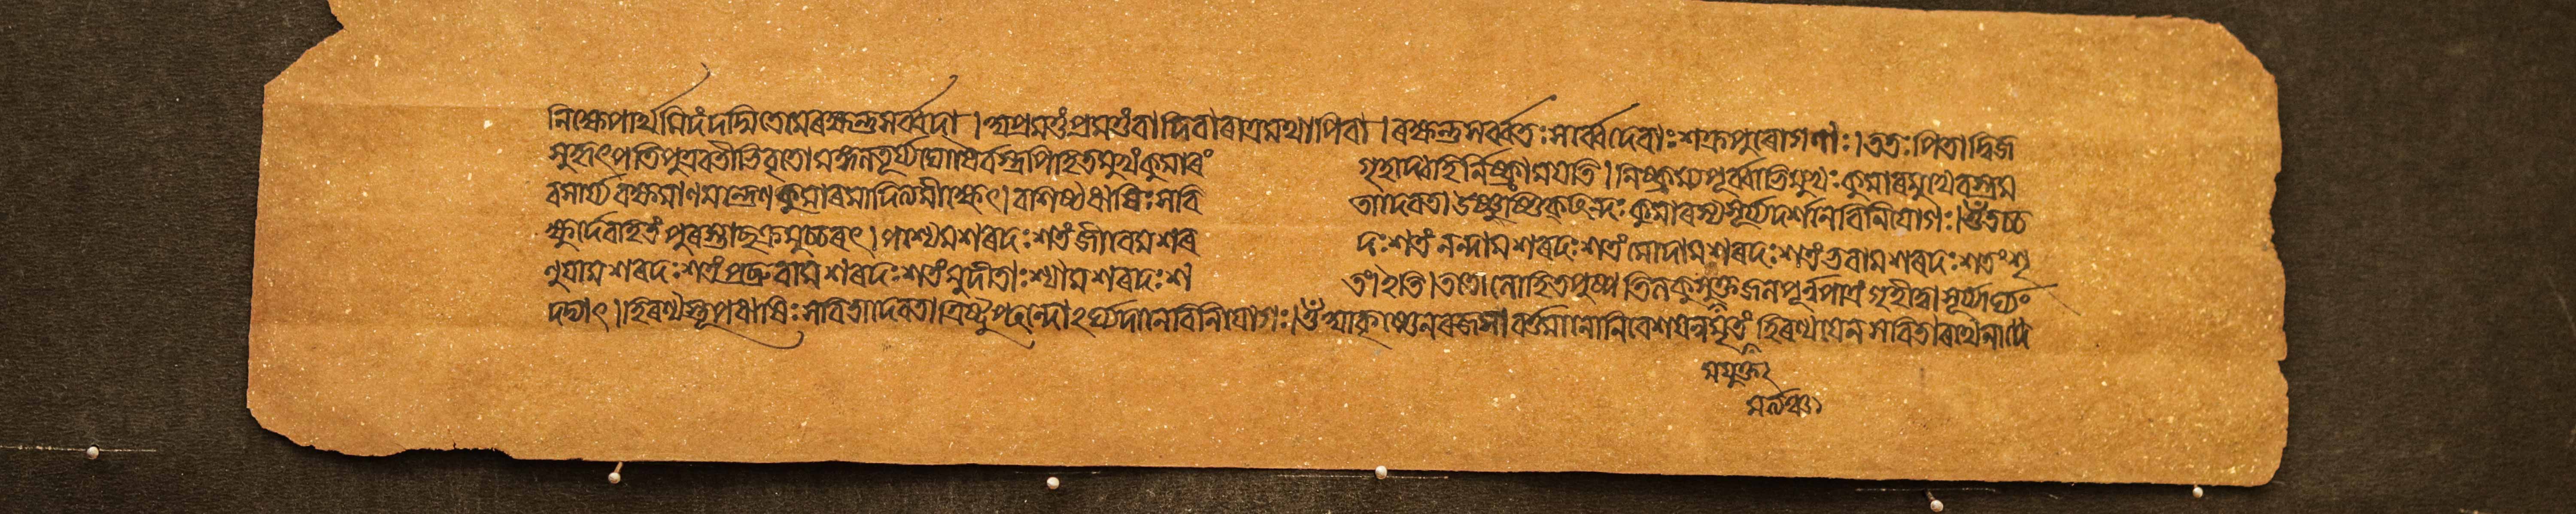 নিক্ষেপাৰ্থমিদং দদ্মি তে মে ৰক্ষন্তু সৰ্ব্বদা । অপ্রমত্তং প্রমত্তং বা দিবাৰাত্রমথাপি বা । ৰক্ষন্তু সৰ্ব্বতঃ সৰ্ব্বে দেবাঃ শক্রপুৰোগমাঃ । ততঃ পিতা দ্বিজ
সুহৃৎপতিপুত্রবতীভিৰ্বৃতো মঙ্গলতূৰ্য্যঘোষৈৰ্বস্ত্রপিহিতমুখং কুমাৰং গৃহাদ্বহিৰ্নিষ্ক্রাময়তি । নিষ্ক্রম্য পূৰ্ব্বাভিমুখঃ কুমাৰমুখে বস্ত্রম
বসাৰ্য্য বক্ষমাণমন্ত্রেণ কুমাৰমাদিত্যমীক্ষয়েৎ । বশিষ্ঠঋষিঃ সবি তা দেবতা উষ্ণিক্ছন্দঃ কুমাৰস্য সূৰ্য্যদৰ্শনে বিনিয়োগঃ । ওঁ তচ্চ
ক্ষুৰ্দেবহিতং পুৰস্তাচ্ছুক্রমুচ্চৰৎ । পশ্যেম শৰদঃ শতং জীবেম শৰ দঃ শতং নন্দাম শৰদঃ শতং মোদাম শৰদঃ শতং ভবাম শৰদঃ শতং শৃ
ণুয়াম শৰদঃ শতং প্রব্রুবাম শৰদঃ শতমদীনাঃ স্যাম শৰদঃ শ তং ইতি । ততো লোহিতপুষ্প তিল কুমুক্ত জলপূৰ্ণপাত্রং গৃহীত্বা সূৰ্য্যাৰ্ঘ্যং
দদ্যাৎ । হিৰণ্যস্তূপঋষিঃ সবিতা দেবতা ত্রিষ্টুপ্ছন্দোঽৰ্ঘ্যদানে বিনিয়োগঃ । ওঁ আকৃষ্ণেন ৰজসা বৰ্ত্তমানো নিবেশয়ন্নমৃতং হিৰণ্যয়েন সবিতা ৰথেনাদে
মৰ্ত্যঞ্চ